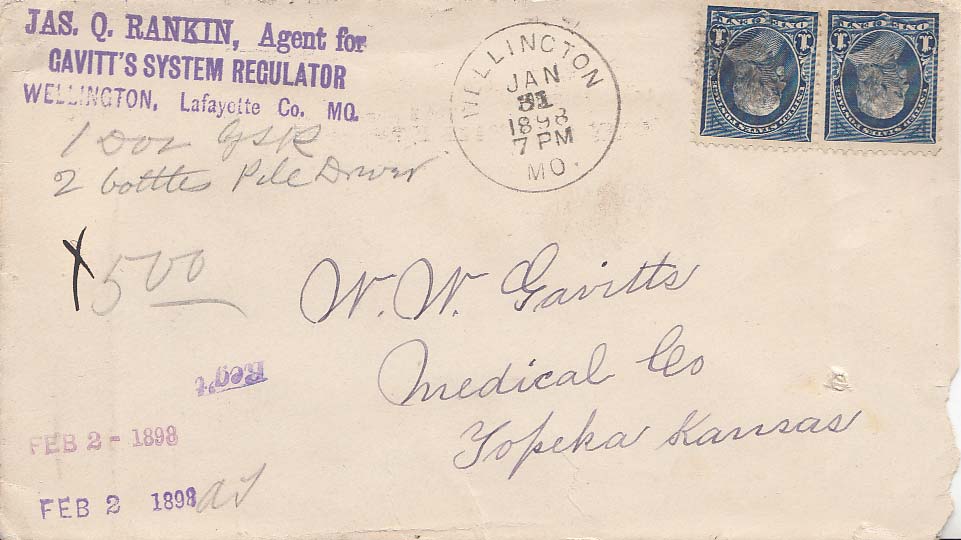 JAS. Q. RANKIN, Agent for
GAVITT'S SYSTEM REGULATOR
WELLINGTON, Lafayette Co. MO.
1 Doz GSR
2 bottles Pile Driver
X 500
WELLINGTON
JAN
31
1898
7 PM
MO.
ONE ONE
1
UNITED STATES POSTAGE
ONE ONE
1
UNITED STATES POSTAGE
W. W. Gavitts
Medical Co
Topeka Kansas
Reg't
FEB 2 - 1898
FEB 2 1898